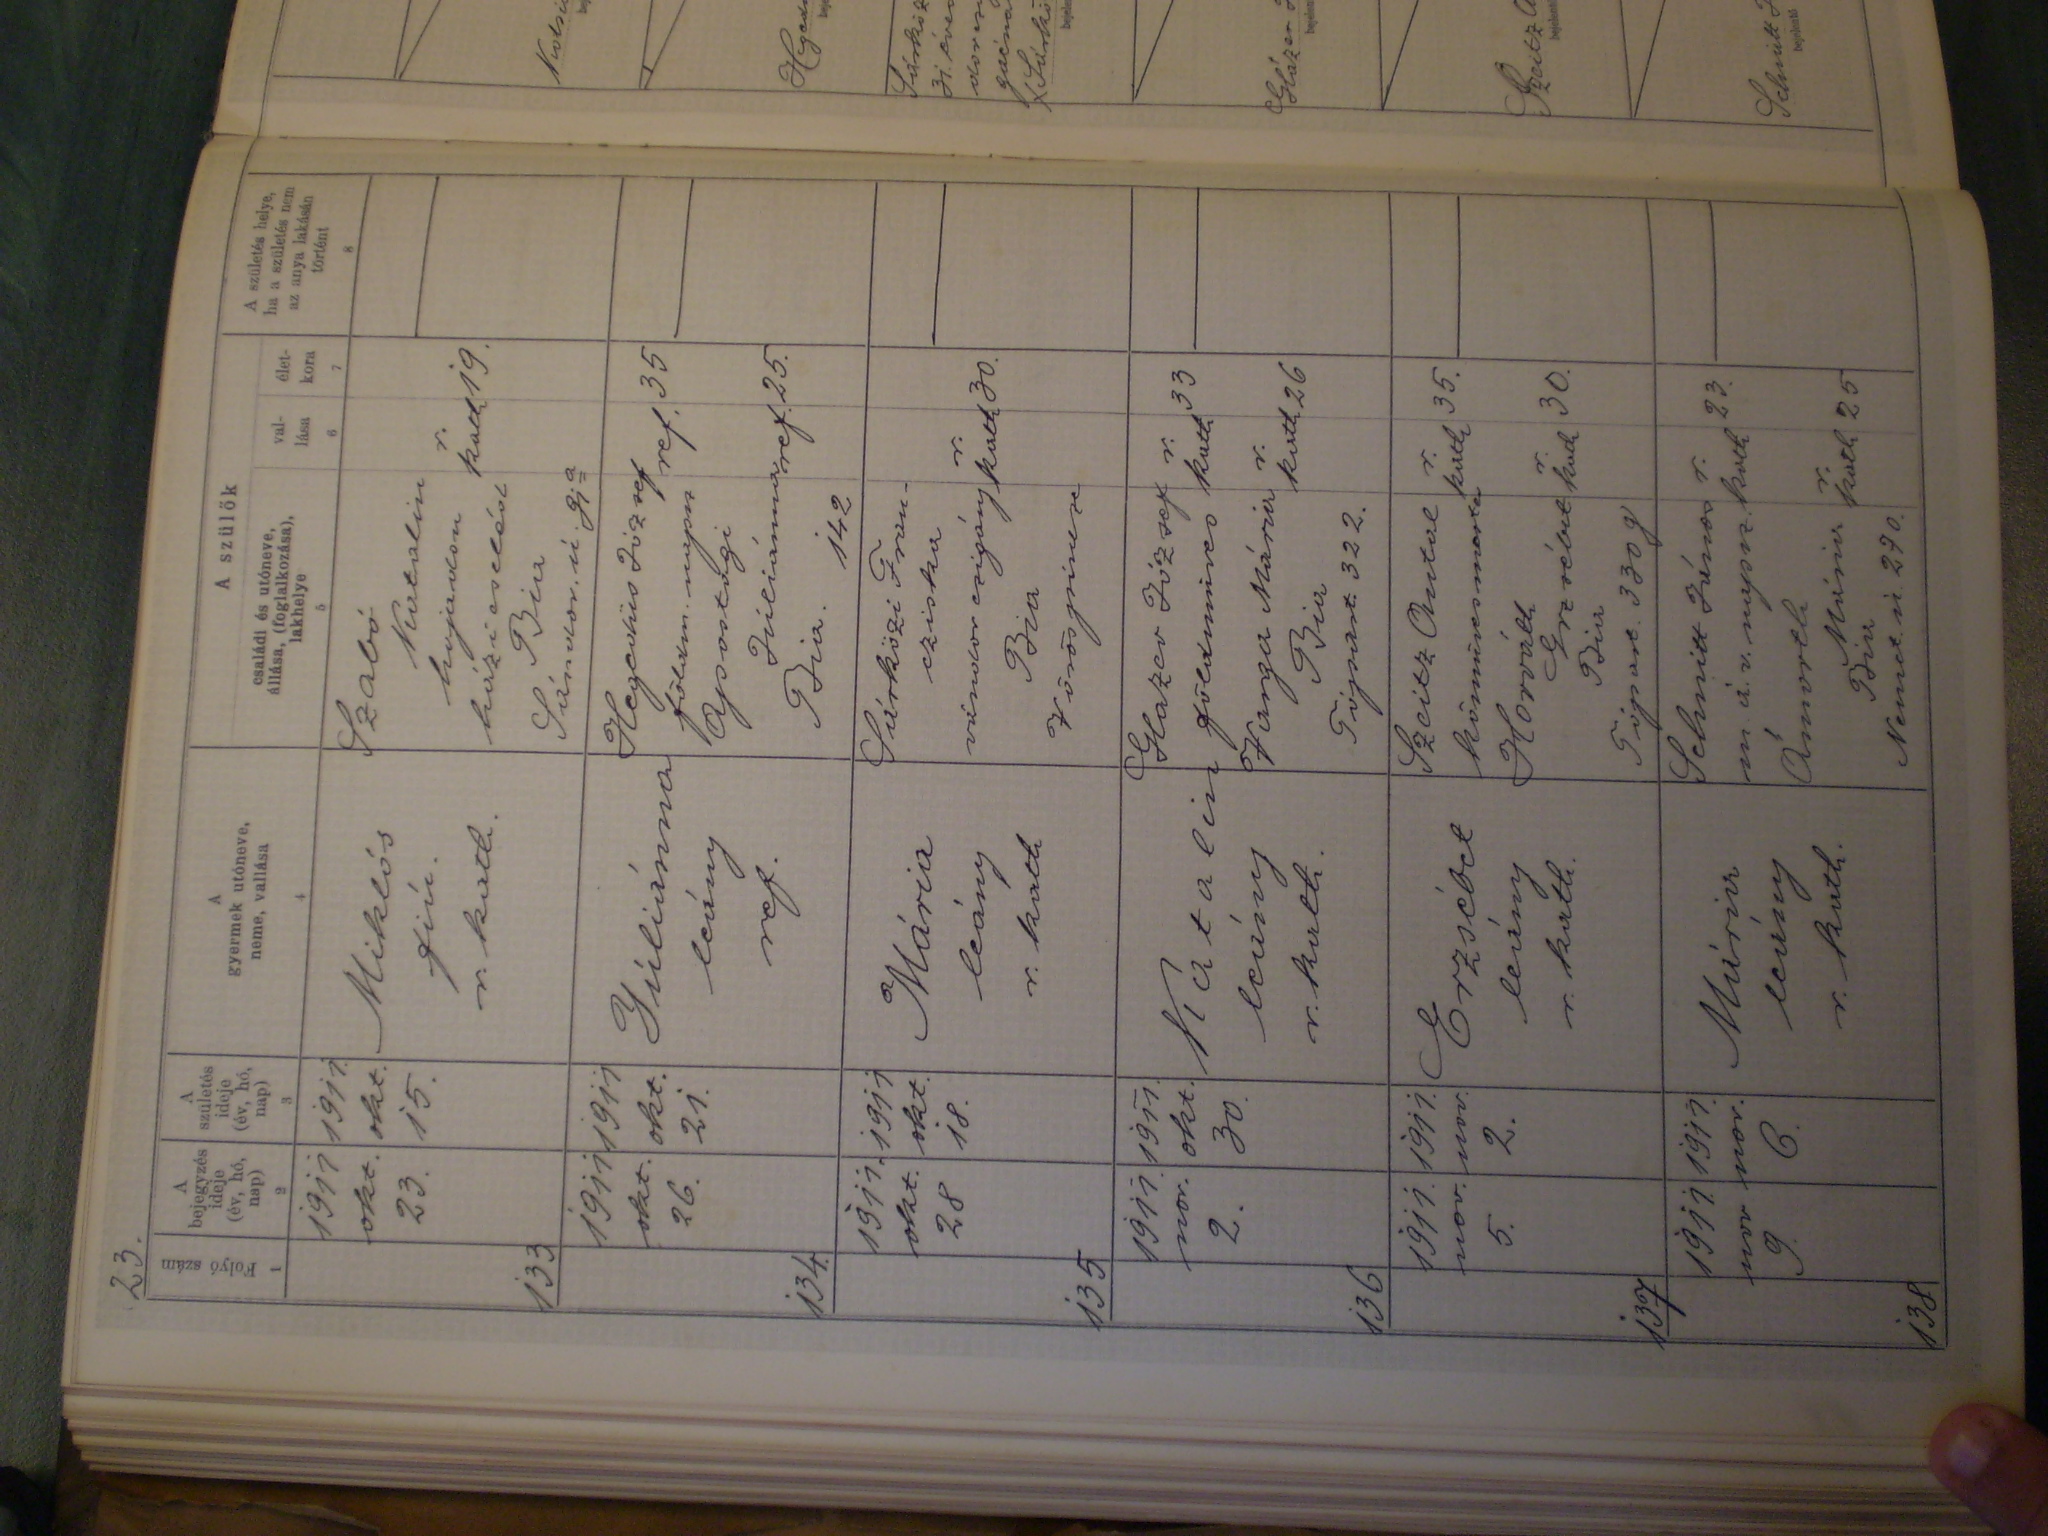 23.
Folyó szám
1
A
bejegyzés
ideje
(év, hó,
nap)
2
A
születés
ideje
(év, hó,
nap)
3
A
gyermek utóneve,
neme, vallása
4
A szülők
családi és utóneve,
állása, (foglalkozása),
lakhelye
5
val-
lása
6
élet-
kora
7
A születés helye,
ha a születés nem
az anya lakásán
történt
8
133
1911
okt.
23.
1911.
okt.
15.
Miklós
fiú.
r. kath.
Szabó
Katalin
hajadon
házi cseléd
Bia
r.
kath
19.
134.
1911
okt.
26.
1911
okt.
21.
Júliánna
leány
ref.
Hegedüs József
földm. napsz
Apostagi
Júliánna
Bia.
142
ref.
35
ref.
25.
135
1911.
okt.
28
1911
okt.
18.
Mária
leány
r. kath
Sárközi Fran-
cziska
vándor czigány
Bia
Vörös pincze
r.
kath
30.
136
1911.
nov.
2.
1911.
okt.
30.
Katalin
leány
r. kath.
Glazer József
földmíves
Varga Mária
Bia
Tópart. 322.
r.
kath
33
r.
kath
26
137
1911.
nov.
5.
1911.
nov.
2.
Erzsébet
leány
r. kath.
Szeitz Antal
kőmüvesmester
Horváth
Erzsébet
Bia
Tópart. 330
r.
kath
35.
r.
kath
30.
138
1911.
nov
9.
1911.
nov.
6.
Mária
leány
r. kath.
Schmitt János
m. á. v. napsz.
Mária
Bia
Német ú. 290.
r.
kath
23.
r.
kath
25
Sárközi
31 éves
Glázer
bejelentő
Szeitz A
bejelentő
Schmitt J
bejelentő